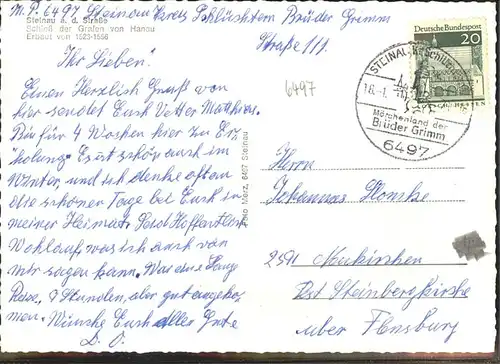 M. P. 6497 Steinau Kreis Schlüchtern Brüder Grimm
Straße 111.
Steinau a. d. Straße
Schloß der Grafen von Hanau
Erbaut von 1523-1556
Ihr Lieben!
Einen Herzlich Gruß von
hier sendet Euch Vetter Matthias.
Bin für 4 Wochen hier zu Er=
holung. Es ist schön auch im
Winter, und ich denke often
die schönen Tage bei Euch in
meiner Heimat. Seid Hoffentlich
Wohlauf, was ich auch von
mir sagen kann. War das Lange
Reise, 9 Stunden, aber gut angeko
men. Wünsche Euch aller Gute
D. O.
Foto Merz, 6497 Steinau
6497
Deutsche Bundespost
20
STEINAU, KR SCHLÜCHTERN
Märchenland der
Brüder Grimm
6497
Herrn
Johannes
2391 Neukirchen
Post Steinbergkirche
über Flensburg